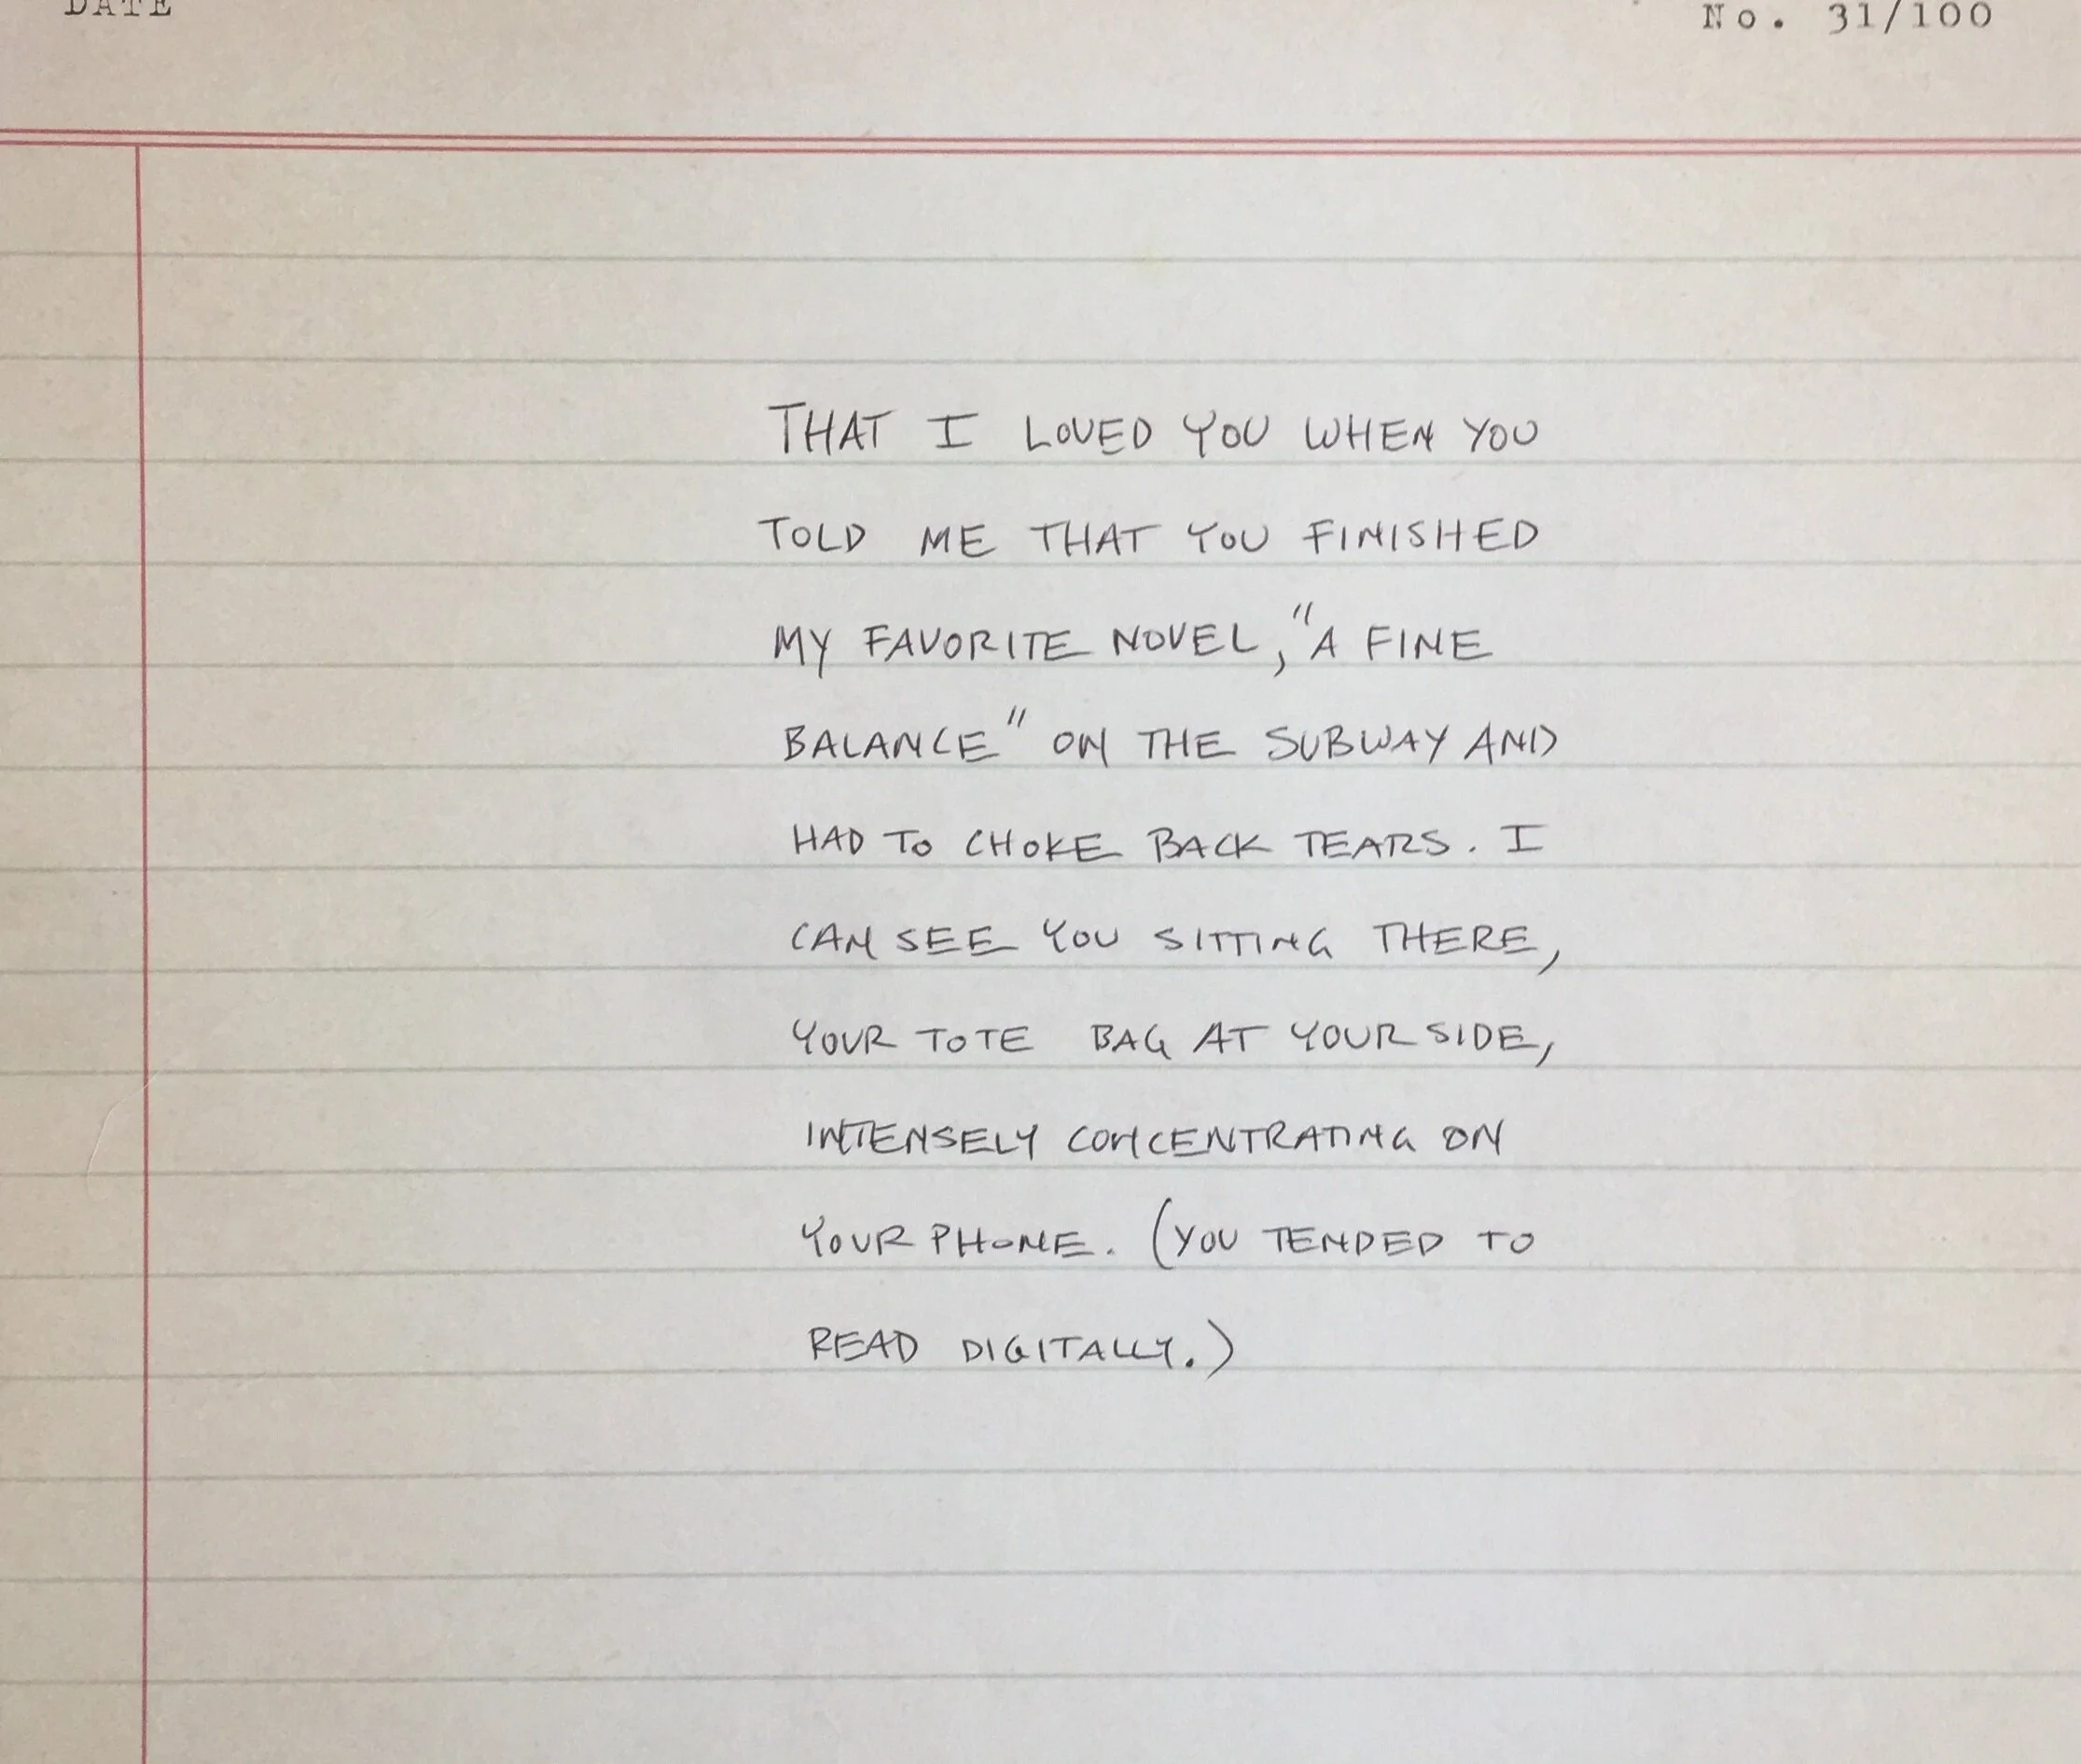 DATE
No. 31/100
THAT I LOVED YOU WHEN YOU
TOLD ME THAT YOU FINISHED
MY FAVORITE NOVEL, "A FINE
BALANCE" ON THE SUBWAY AND
HAD TO CHOKE BACK TEARS. I
CAN SEE YOU SITTING THERE,
YOUR TOTE BAG AT YOUR SIDE,
INTENSELY CONCENTRATING ON
YOUR PHONE. (YOU TENDED TO
READ DIGITALLY.)